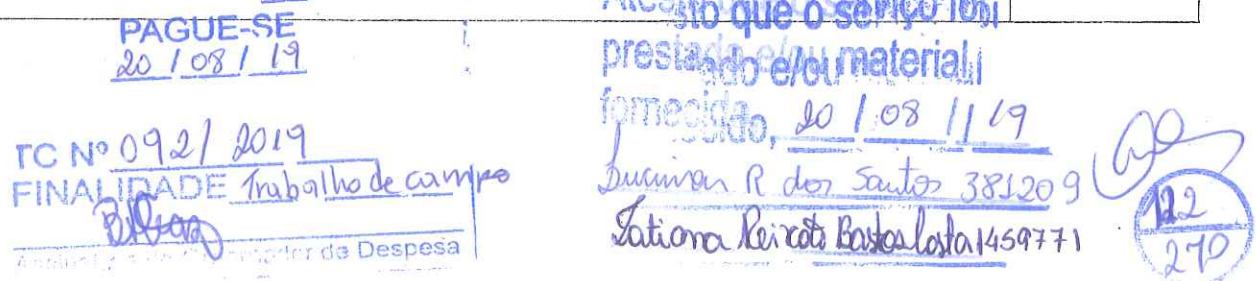 PAGUE-SE
20 / 08 / 19
TC Nº 092/ 2019
FINALIDADE Trabalho de campo
de Despesa
que o serviço foi
prestado e/ou material
fornecido, 20 / 08 / 19
Lucimar R dos Santos 381209
Tatiana Peixoto Bastos Costa 1459771
122
270